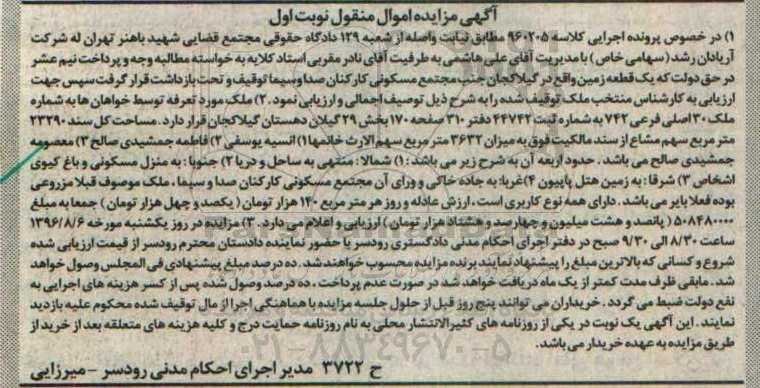 آگهی مزایده اموال منقول نوبت اول
۱) در خصوص پرونده اجرایی کلاسه ۹۶۰۲۰۵ مطابق نیابت واصله از شعبه ۱۲۹ دادگاه حقوقی مجتمع قضایی شهید باهنر تهران له شرکت
آریادان رشد (سهامی خاص) با مدیریت آقای علی هاشمی به طرفیت آقای نادر مقربی استاد کلایه به خواسته مطالبه وجه و پرداخت نیم عشر
در حق دولت که یک قطعه زمین واقع در گیلاکجان جنب مجتمع مسکونی کارکنان صدا و سیما توقیف و تحت بازداشت قرار گرفت سپس جهت
ارزیابی به کارشناس منتخب ملک توقیف شده را به شرح ذیل توصیف اجمالی و ارزیابی نمود. ۲) ملک مورد تعرفه توسط خواهان ها به شماره
ملک ۳۰ اصلی فرعی ۷۴۲ به شماره ثبت ۴۴۷۴۲ دفتر ۳۱۰ صفحه ۱۷۰ بخش ۲۹ گیلان دهستان گیلاکجان قرار دارد. مساحت کل سند ۲۳۲۹۰
متر مربع سهم مشاع از سند مالکیت فوق به میزان ۳۶۳۲ متر مربع سهم الارث خانمها ۱) انسیه یوسفی ۲) فاطمه جمشیدی صالح ۳) معصومه
جمشیدی صالح می باشد. حدود اربعه آن به شرح زیر می باشد: ۱) شمالا: منتهی به ساحل و دریا ۲) جنوبا: به منزل مسکونی و باغ کیوی
اشخاص ۳) شرقا: به زمین هتل پاپیون ۴) غربا: به جاده خاکی و ورای آن مجتمع مسکونی کارکنان صدا و سیما، ملک موصوف قبلا مزروعی
بوده فعلا بایر می باشد. دارای همه نوع کاربری است، ارزش عادله و روز هر متر مربع ۱۴۰ هزار تومان (یکصد و چهل هزار تومان) جمعا به مبلغ
۵۰۸۴۸۰۰۰۰ (پانصد و هشت میلیون و چهارصد و هشتاد هزار تومان) ارزیابی و اعلام می دارد. ۳) مزایده در روز یکشنبه مورخه ۱۳۹۶/۸/۶
ساعت ۸/۳۰ الی ۹/۳۰ صبح در دفتر اجرای احکام مدنی دادگستری رودسر با حضور نماینده دادستان محترم رودسر از قیمت ارزیابی شده
شروع و کسانی که بالاترین مبلغ را پیشنهاد نمایند برنده مزایده محسوب خواهند شد. ده درصد مبلغ پیشنهادی فی المجلس وصول خواهد
شد. مابقی ظرف مدت کمتر از یک ماه دریافت خواهد شد در صورت عدم پرداخت، ده درصد وصول شده پس از کسر هزینه های اجرایی به
نفع دولت ضبط می گردد. خریداران می توانند پنج روز قبل از حلول جلسه مزایده با هماهنگی اجرا از مال توقیف شده محکوم علیه بازدید
نمایند. این آگهی یک نوبت در یکی از روزنامه های کثیرالانتشار محلی به نام روزنامه حمایت درج و کلیه هزینه های متعلقه بعد از خرید از
طریق مزایده به عهده خریدار می باشد.
۰۲۱-۸۸۳۴۹۶۷۰-۵
ح ۳۷۲۲ مدیر اجرای احکام مدنی رودسر - میرزایی